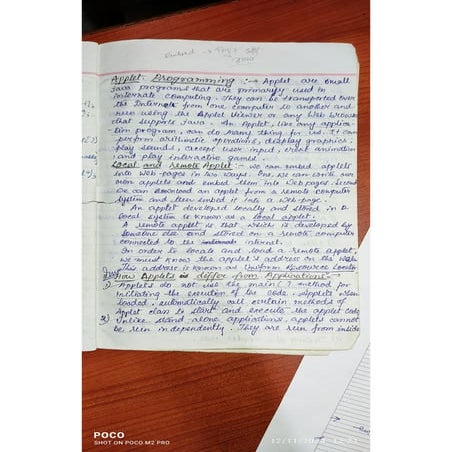 Applet Programming :→ Applet are small
Java programs that are primarily used in
Internate computing. They can be transported over
the Internate from one computer to another and
run using the Applet Viewer or any Web Browser
that supports Java. An Applet, like any applica-
tion program, can do many thing for us. It can
perform arithmetic operations, display graphics,
play sounds, except user input, creat animation
and play interactive games.
Local and Remote Applet :- We can embed applets
into Web pages in two ways. One, we can write our
own applets and embed them into Web pages.
We can download an applet from a remote computer
system and then embed it into a web page.
An applet developed locally and stored in a
local system is known as a local applet.
A remote applet is that which is developed by
someone else and stored on a remote computer
connected to the internet.
In order to locate and load a remote applet,
we must know the applet's address on the Web.
This address is known as Uniform Resource Locator
How Applets is differ from Applications
1) Applets do not use the main( ) method for
initiating the execution of the code. Applets, when
loaded, automatically call certain methods of
Applet class to start and execute the applet code
2) Unlike stand-alone applications, applets cannot
be run independently. They are run from inside
POCO
SHOT ON POCO M2 PRO
12/11/